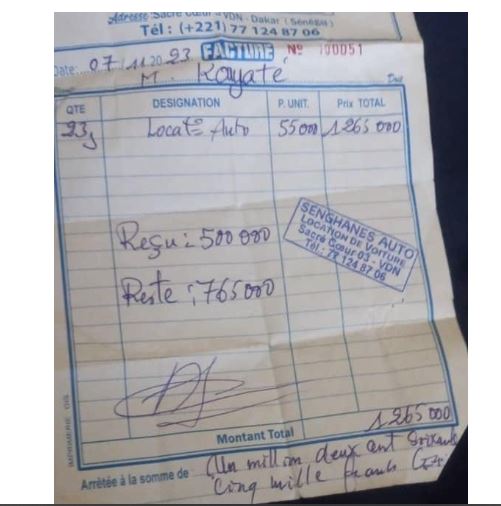 Adresse : Sacré Cœur - VDN - Dakar (Sénégal)
Tél : (+221) 77 124 87 06
Date: 07 / 11 20 23 FACTURE N° 100051
M. Kayaté Doit
QTE DESIGNATION P. UNIT. Prix TOTAL
23j Locat° Auto 55 000 1 265 000
Reçu : 500 000
SENGHANES AUTO
LOCATION DE VOITURE
Sacré Cœur 03 - VDN
Tél.: 77 124 87 06
Reste : 765 000
Montant Total 1 265 000
Arrêtée à la somme de Un million deux cent soixante
Cinq mille francs Cfa
IMPRIMERIE